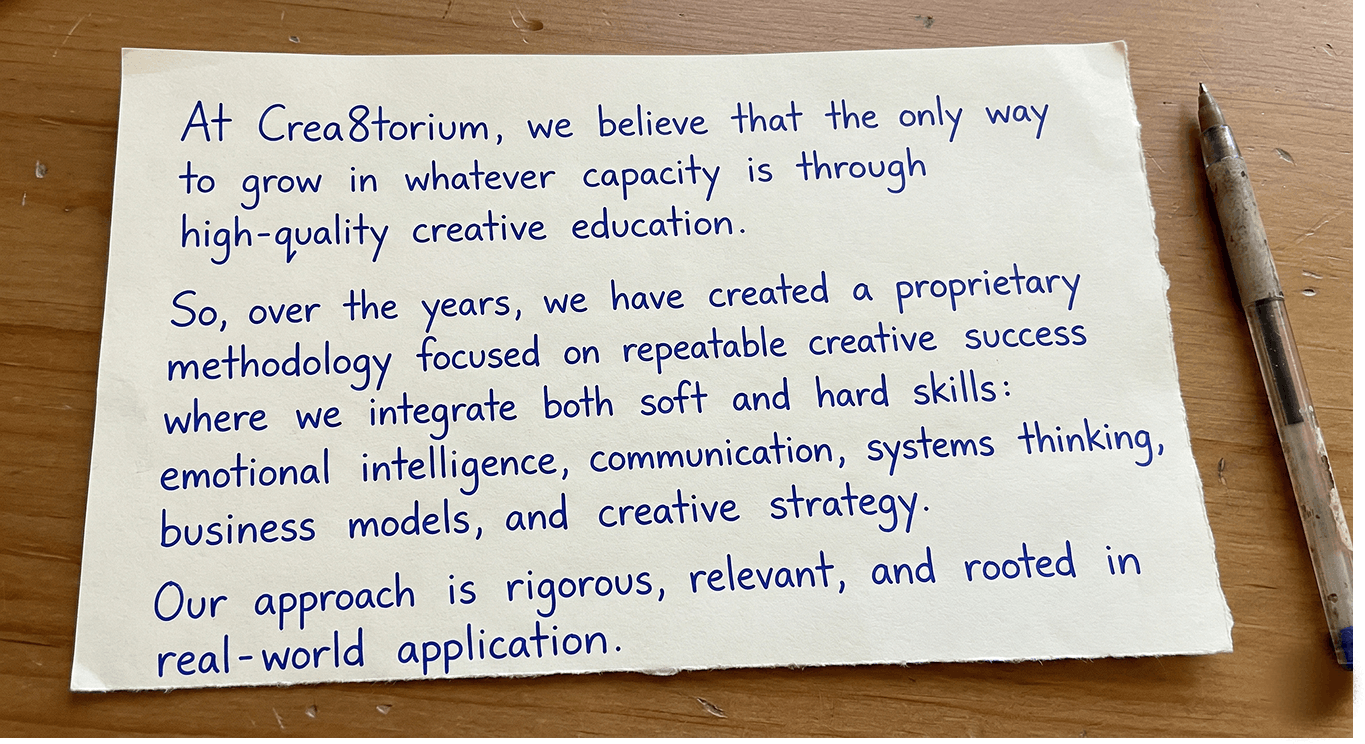 At Crea8torium, we believe that the only way
to grow in whatever capacity is through
high-quality creative education.
So, over the years, we have created a proprietary
methodology focused on repeatable creative success
where we integrate both soft and hard skills:
emotional intelligence, communication, systems thinking,
business models, and creative strategy.
Our approach is rigorous, relevant, and rooted in
real-world application.